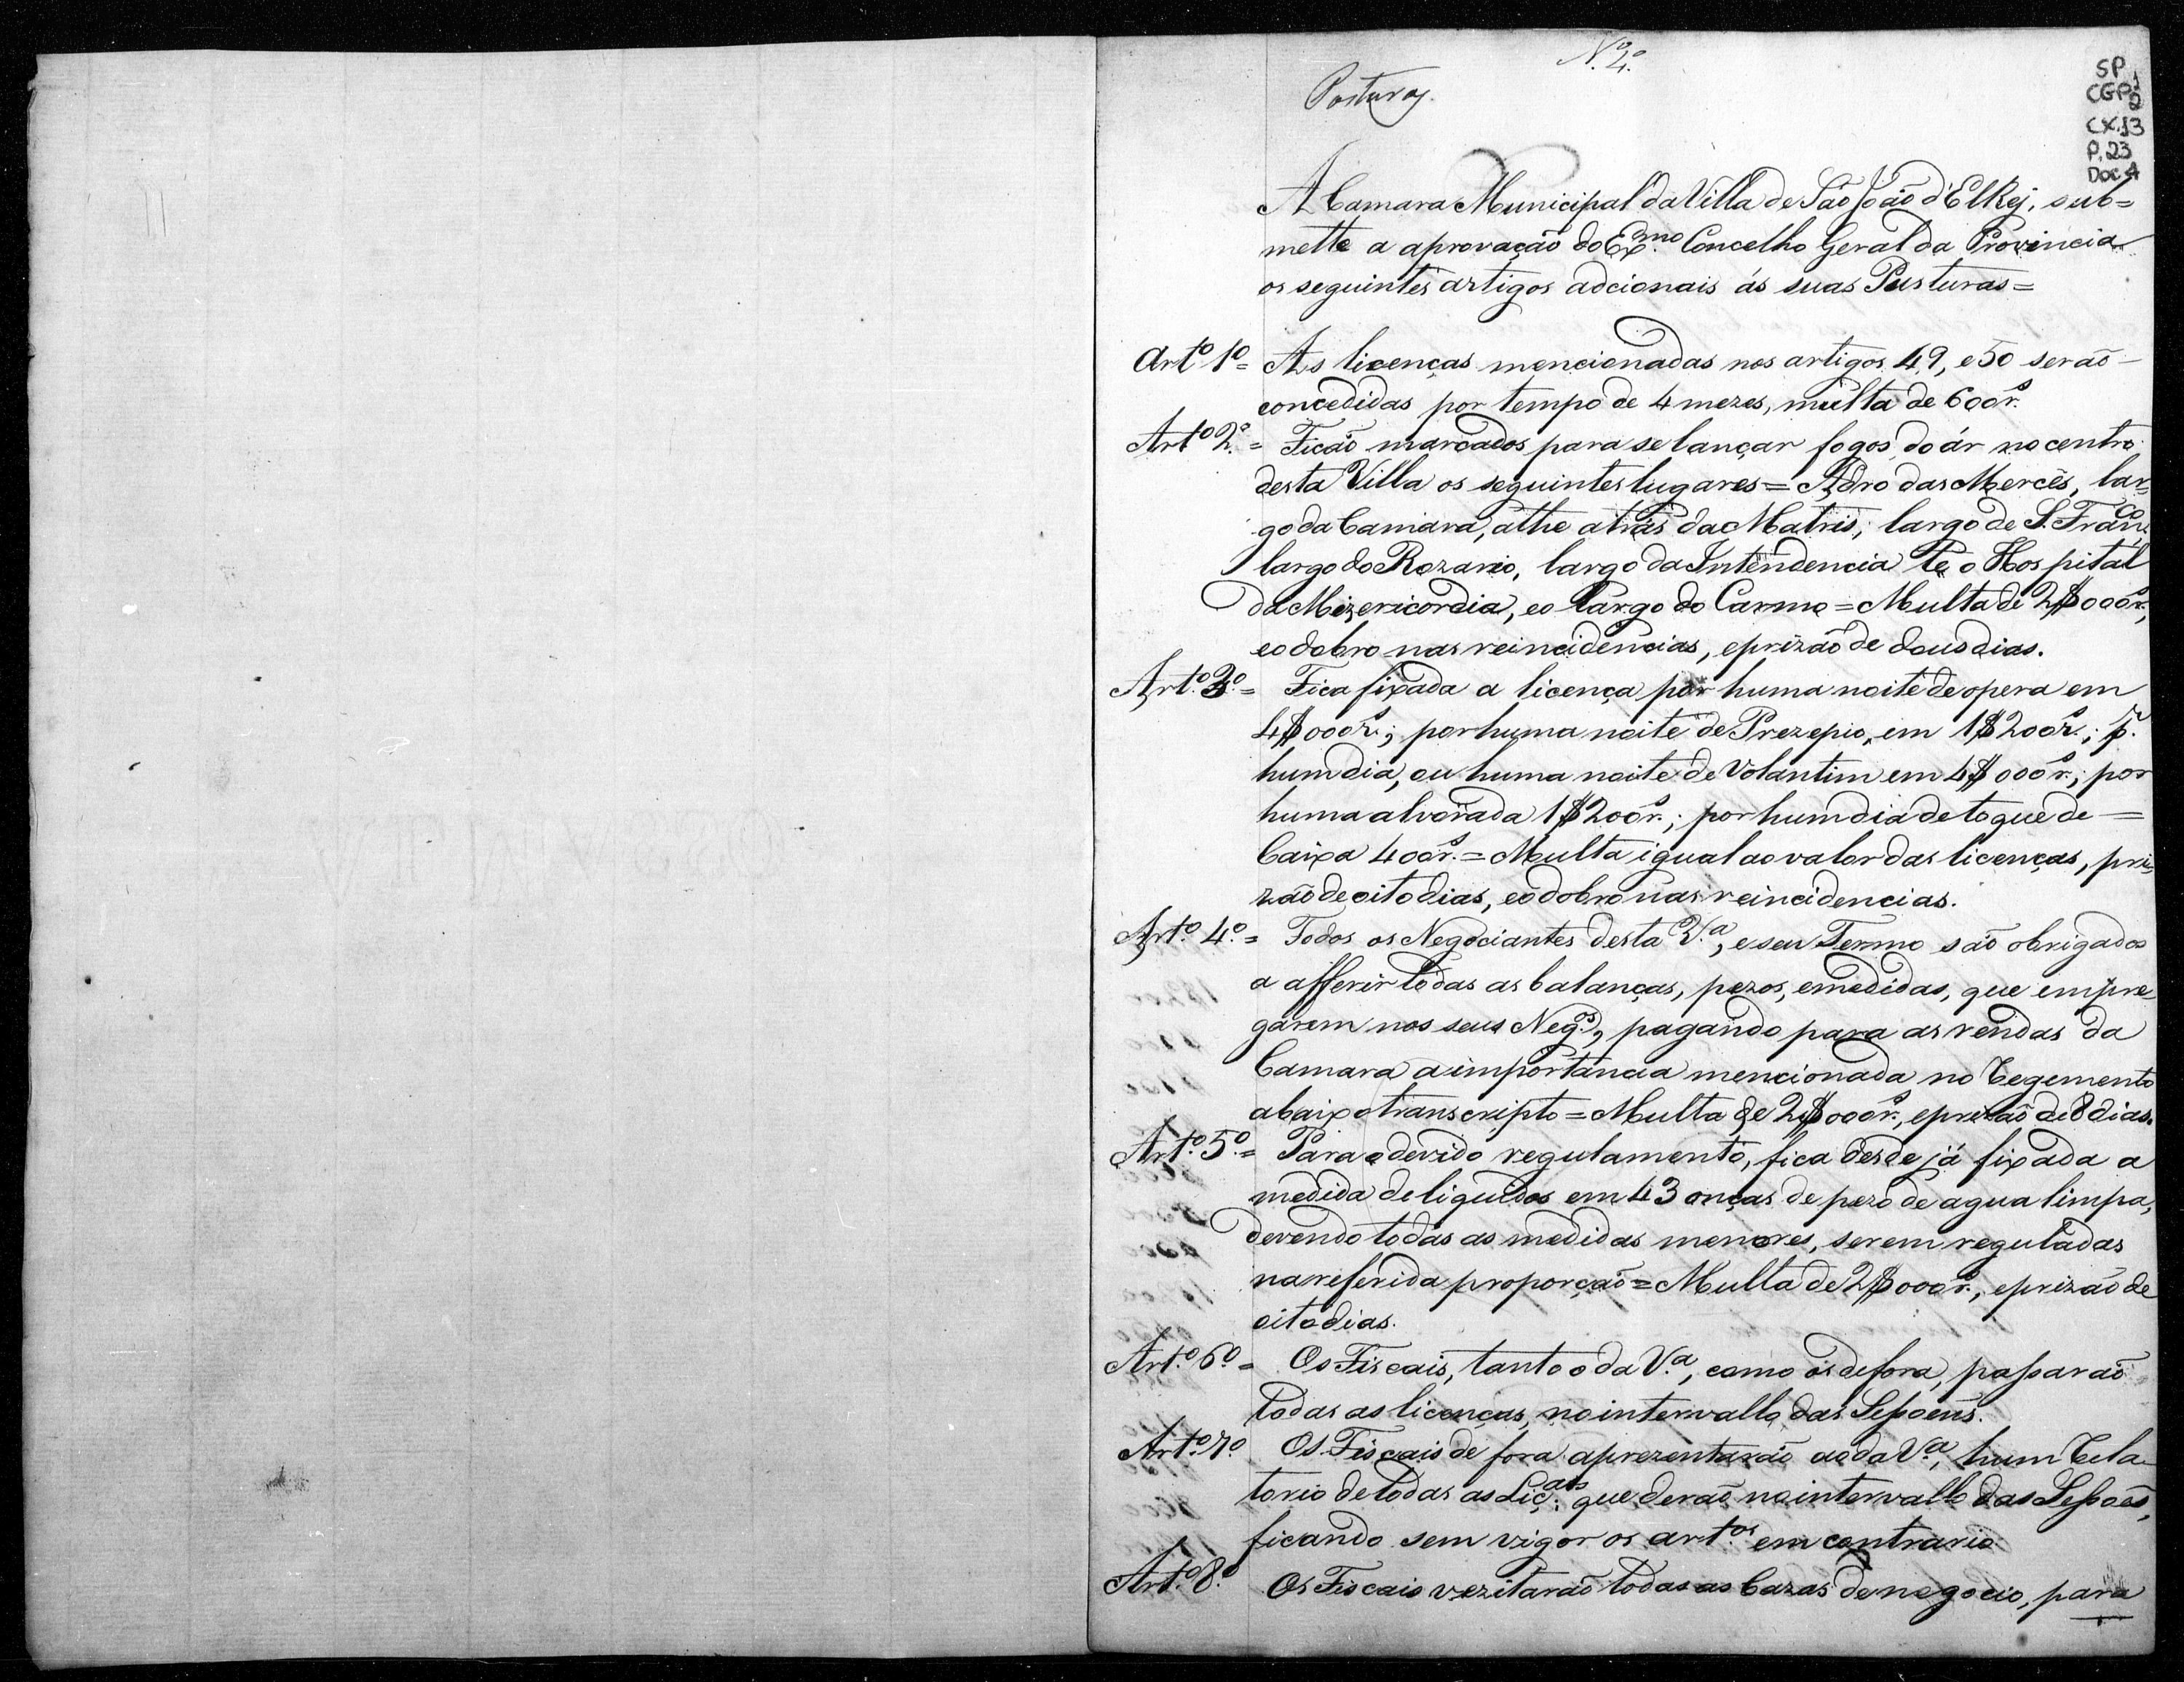 N.º 2.º
Posturas.
SP
CGP1
CX.13
P.23
Doc 4
A Camara Municipal da Villa de São João d'ElRej, sub=
mette a aprovação do Ex.mo Concelho Geral da Provincia
os seguintes artigos adcionais ás suas Pusturas=
Art.º 1º= As licenças mencionadas nos artigos 49, e 50 serão
concedidas por tempo de 4 mezes, multa de 600r.s
Art.º 2.º= Ficão marcados para se lançar fogos do ár no centro
desta Villa os seguintes lugares= Adro das Mercês, lar=
go da Camara, athe atrás da Matris; largo de S. Fran.co
largo do Rozario, largo da Intendencia te o Hospital
da Mizericordia, e o largo do Carmo= Multa de 2$000r.s,
e o dobro nas reincidencias, e prizão de dous dias.
Art.º 3.º= Fica fixada a licença por huma noite de opera em
4$000r.s; por huma noite de Prezepio, em 1$200r.s; p.r
hum dia, ou huma noite de Volantim em 4$000r.s; por
huma alvorada 1$200r.s; por hum dia de toque de =
Caixa 400r.s= Multa igual ao valor das licenças, pri=
zão de oito dias, e o dobro nas reincidencias.
Art.º 4.º= Todos os Negociantes desta V.a, e seu Termo são obrigados
a afferir todas as balanças, pezos, e medidas, que empre
garem nos seus Neg.os, pagando para as rendas da
Camara a importancia mencionada no Regemento
abaixo transcripto= Multa de 2$000r.s, e prizão de 8 dias.
Art.º 5.º= Para o devido regulamento, fica desde já fixada a
medida de liquidos em 43 onças de pezo de agua limpa,
devendo todas as medidas menores, serem reguladas
na referida proporção= Multa de 2$000r.s, e prizão de
oito dias.
Art.º 6.º= Os Fiscais, tanto o da V.a, como os de fora, passarão
todas as licenças, no intervallo das Sessoens.
Art.º 7.º Os Fiscais de fora aprezentarão ao da V.a, hum Rela
torio de todas as Liç.as que derão no intervallo das Sessoes,
ficando sem vigor os art.os em contrario
Art.º 8.º Os Fiscais vezitarão todas as Cazas de negocio, para